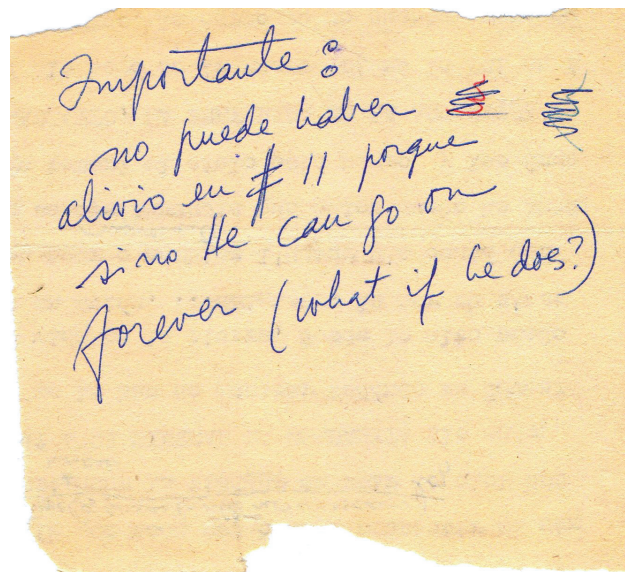 Importante:
no puede haber
alivio en # 11 porque
sino He can go on
forever (what if he does?)